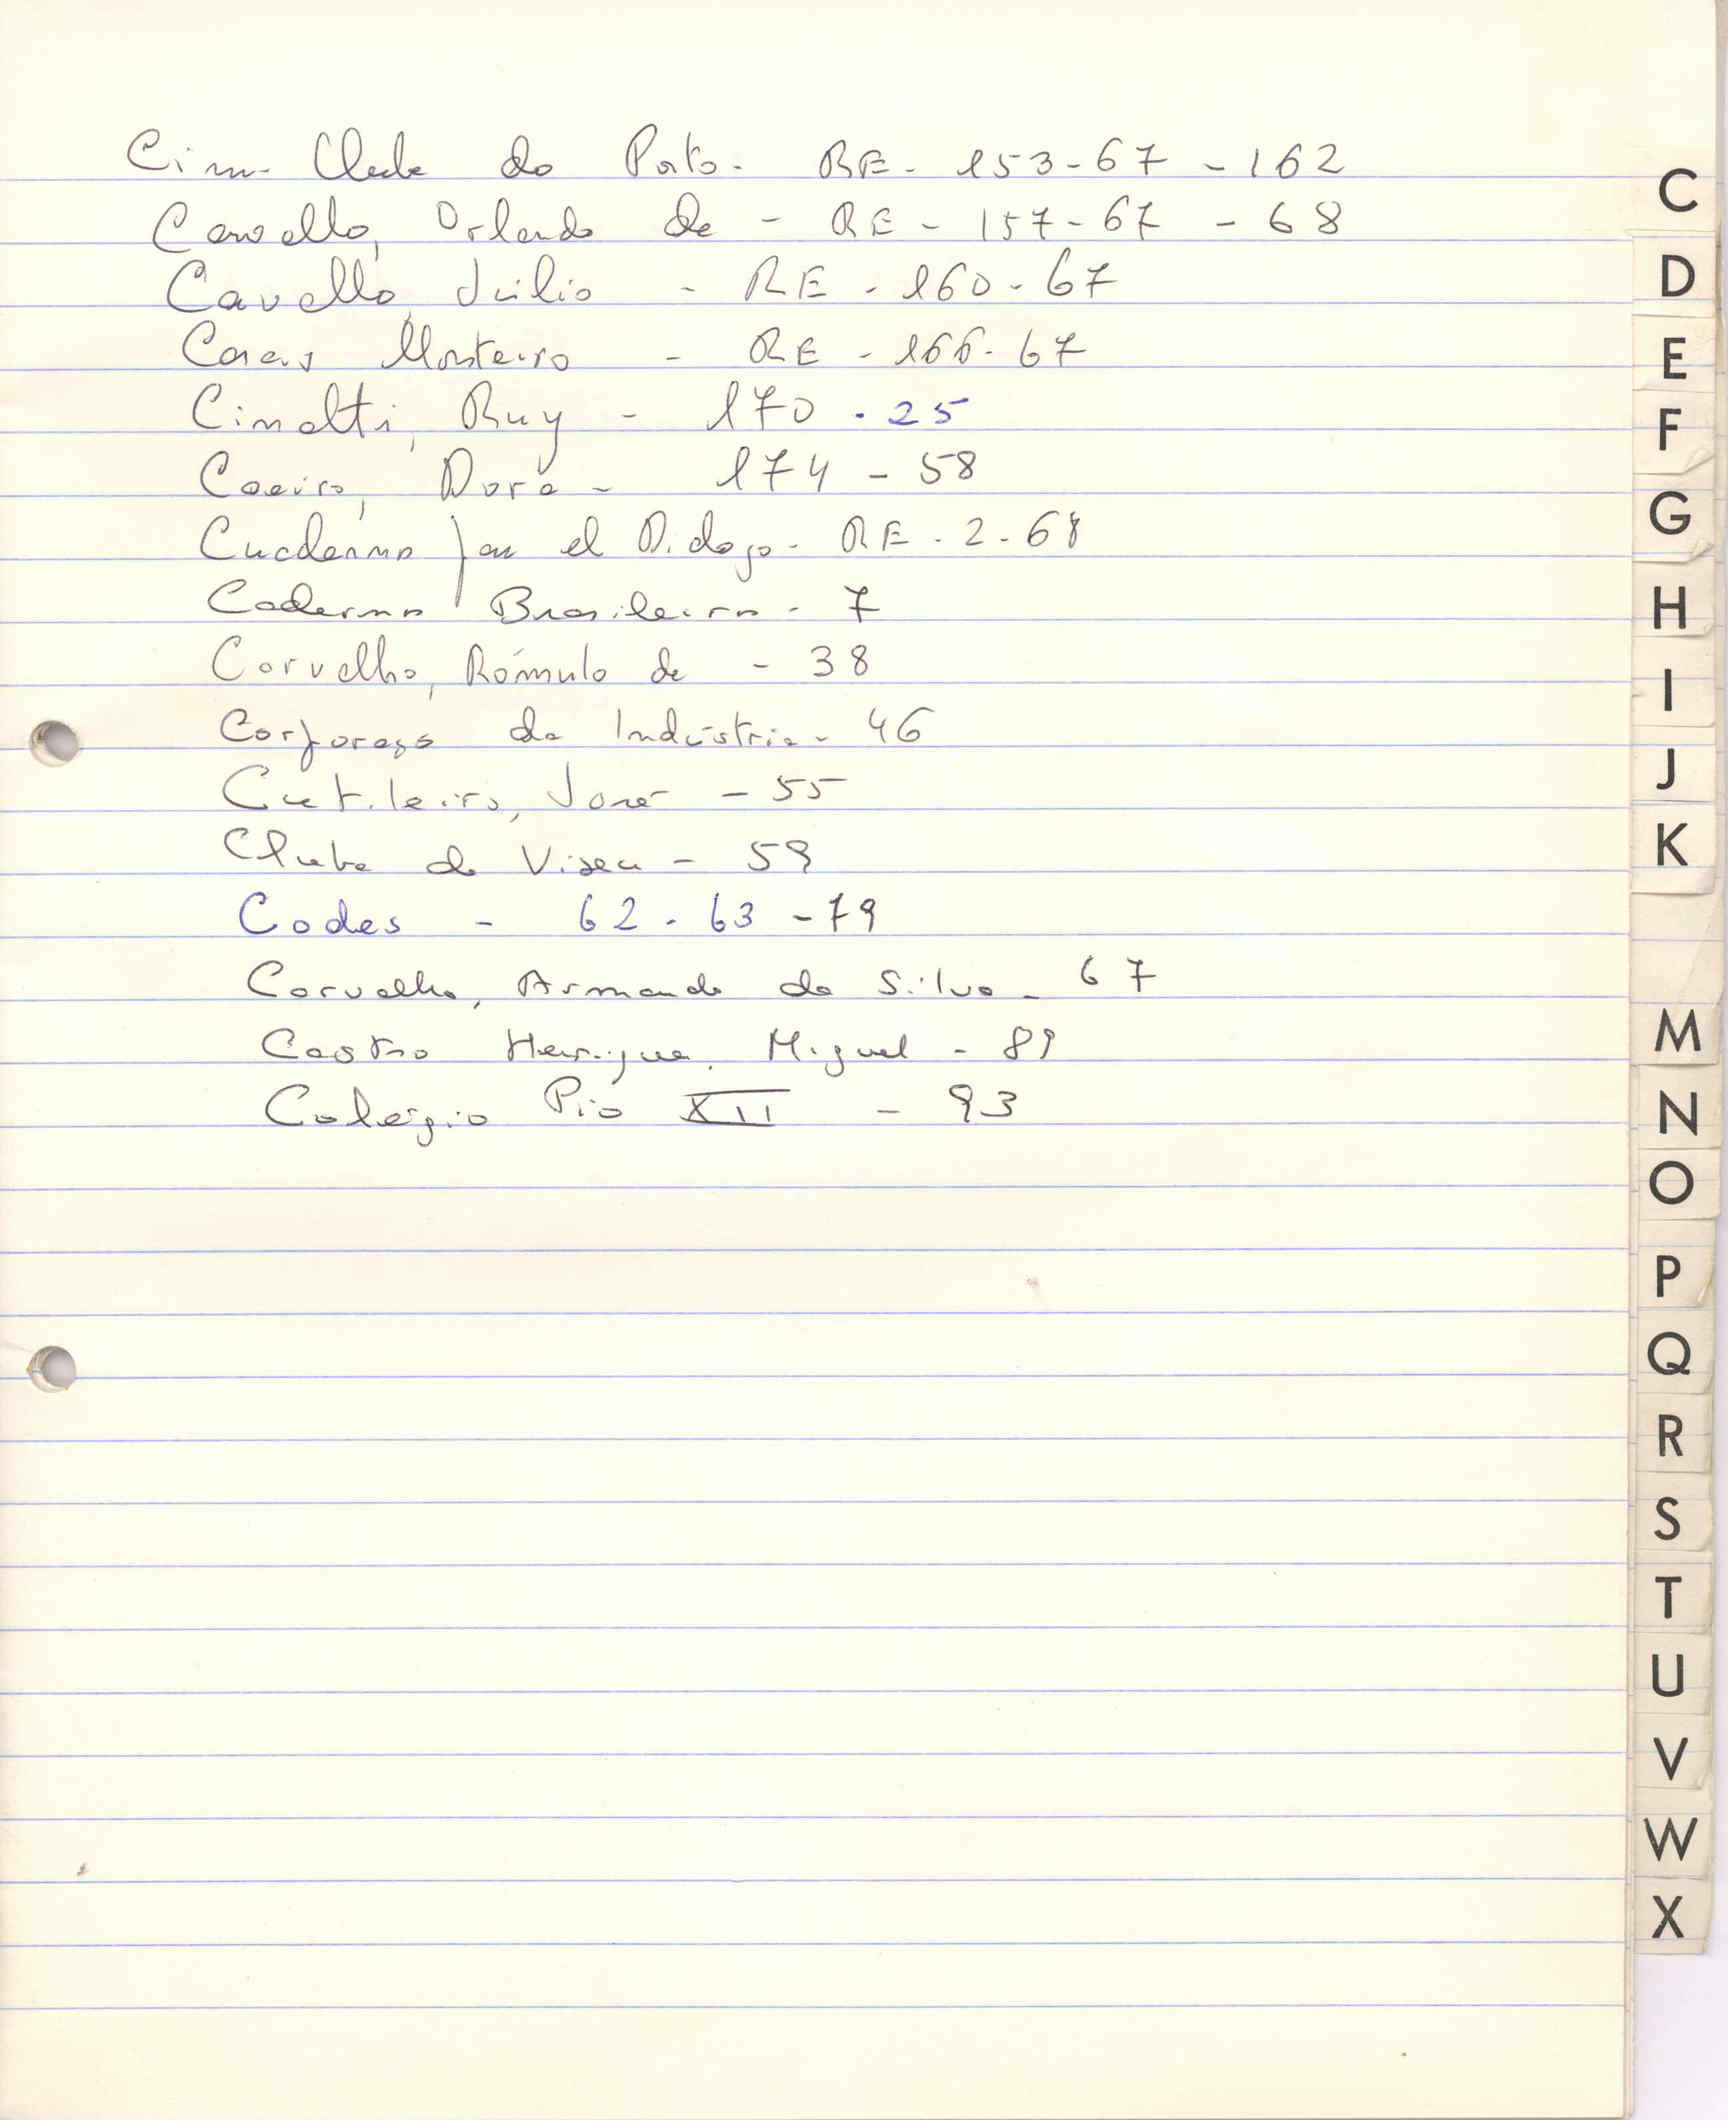 Cine-Clube do Porto - RE - 153-67 - 162
Carvalho, Orlando de - RE - 157-67 - 68
Carvalho, Júlio - RE - 160-67
Casais Monteiro - RE - 166-67
Cinatti, Ruy - 170 - 25
Caeiro, Dora - 174 - 58
Cuadernos para el Diálogo - RE - 2-68
Cadernos Brasileiros - 7
Carvalho, Rómulo de - 38
Corporação da Indústria - 46
Cutileiro, José - 55
Clube de Viseu - 59
Codes - 62 - 63 - 79
Carvalho, Armando da Silva - 67
Castro Henriques, Miguel - 89
Colégio Pio XII - 93
C
D
E
F
G
H
I
J
K
M
N
O
P
Q
R
S
T
U
V
W
X